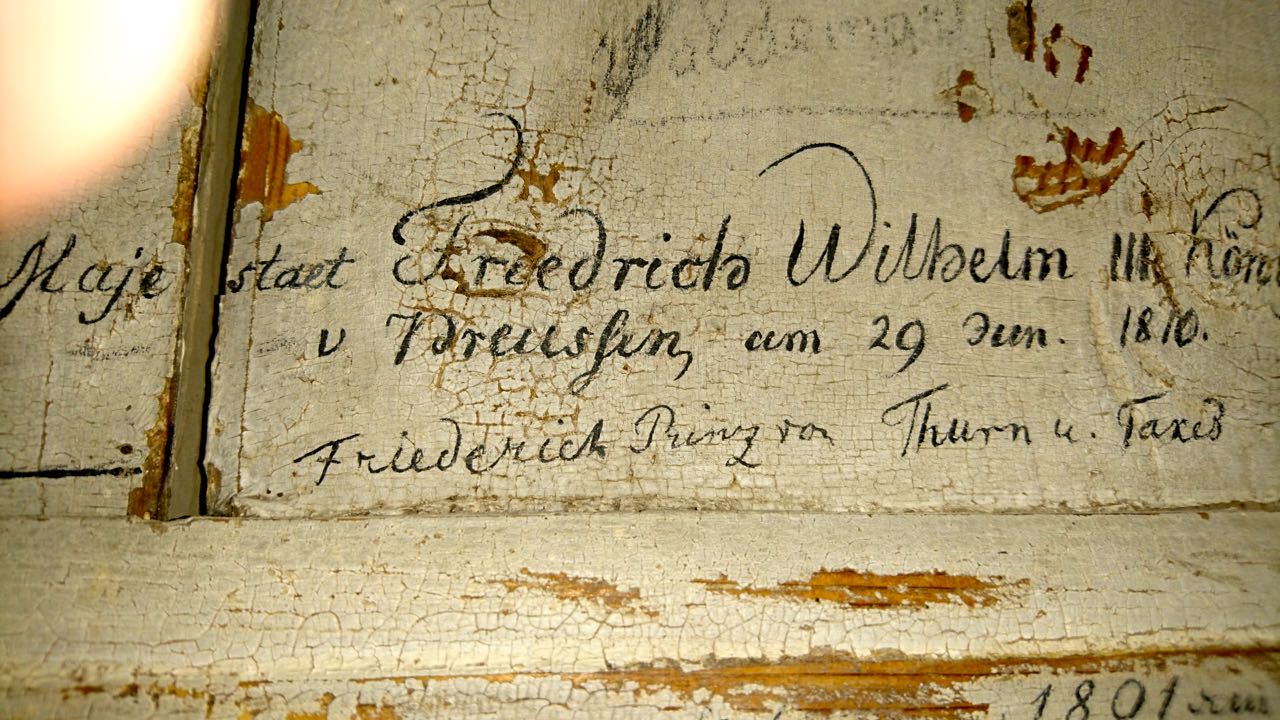 Majestaet Friedrich Wilhelm III. Kön
v Preussen, am 29 Jun. 1810.
Friederich Prinz von Thurn u. Taxis
1801